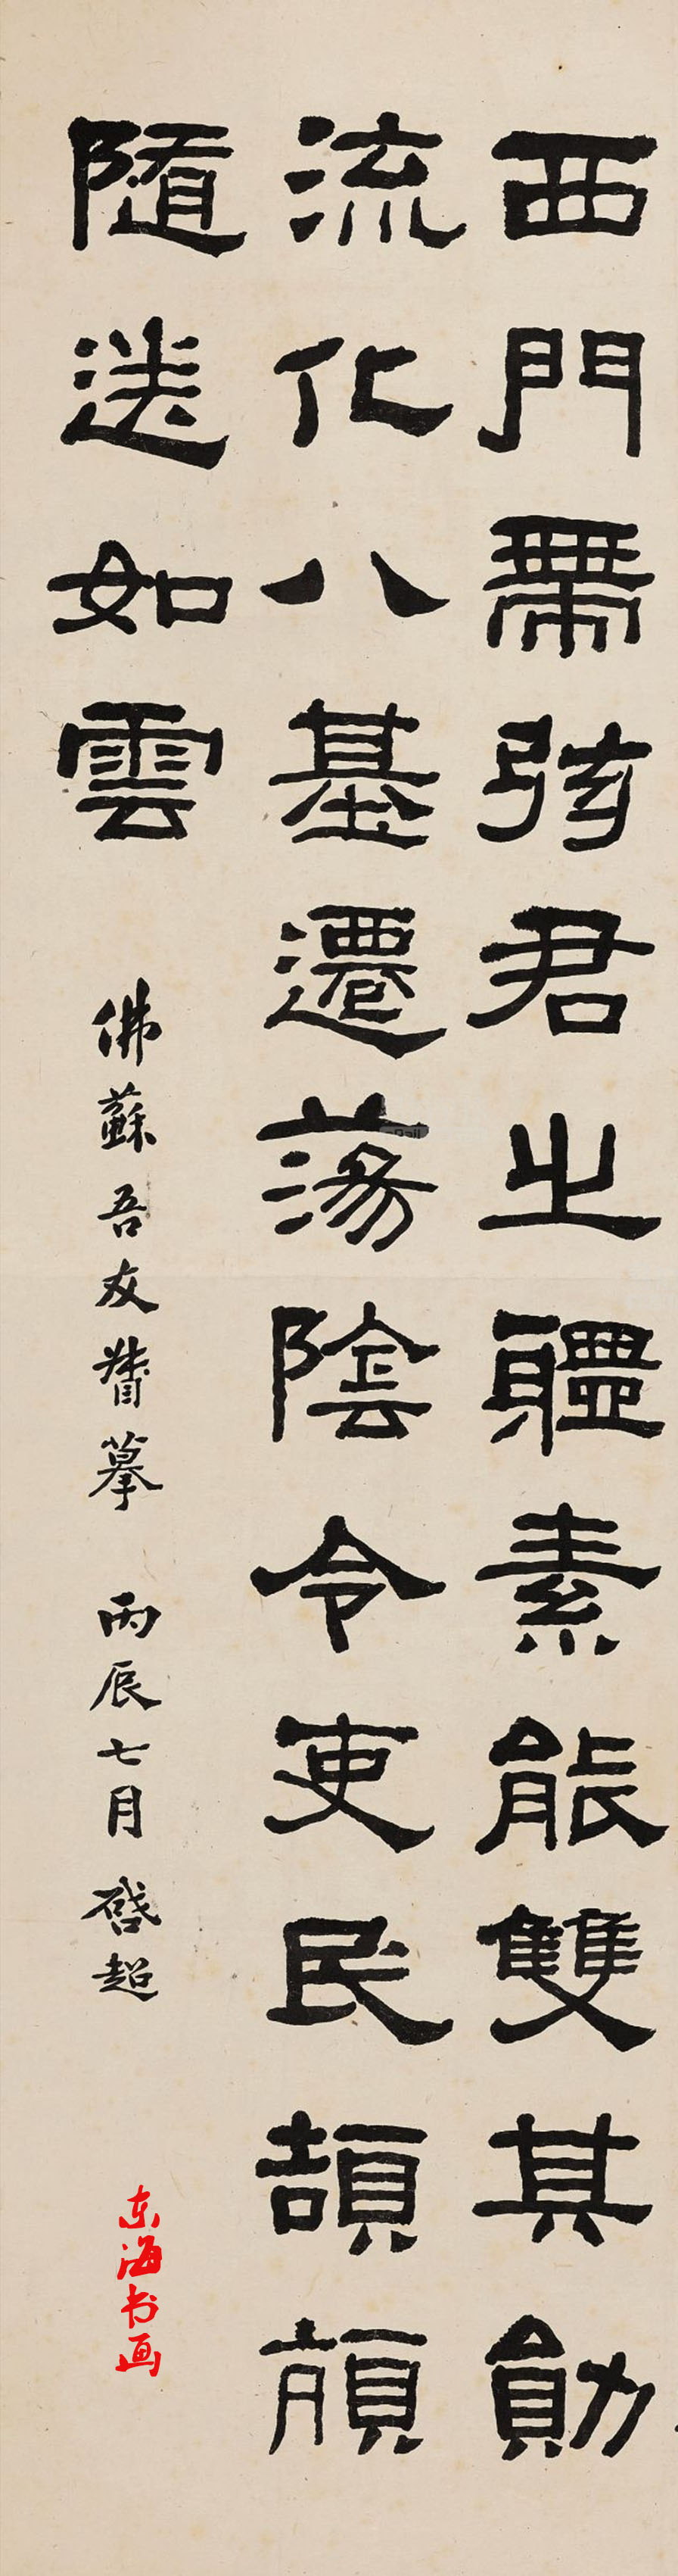 西門帶弦君之體素能雙其勛
流化八基遷蕩陰令吏民頡頏
隨送如雲
佛蘇吾友督摹 丙辰七月 啓超
东海书画